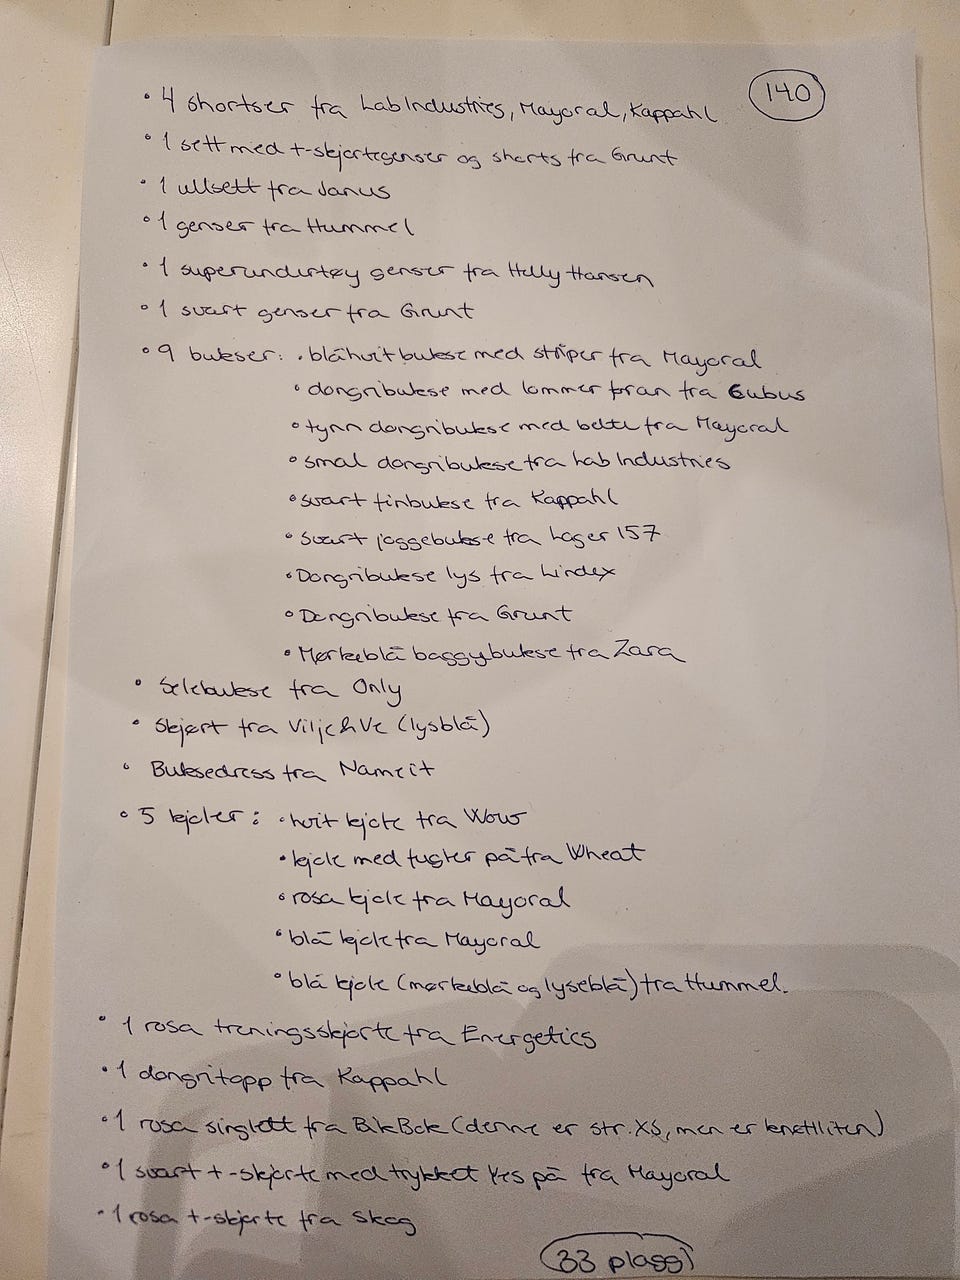 140
• 4 shortser fra Lab Industries, Mayoral, Kappahl
• 1 sett med t-skjortegenser og shorts fra Grunt
• 1 ullsett fra Janus
• 1 genser fra Hummel
• 1 superundertøy genser fra Helly Hansen
• 1 svart genser fra Grunt
• 9 bukser: • blåhvit bukse med striper fra Mayoral
• dongribukse med lommer foran fra Cubus
• tynn dongribukse med belte fra Mayoral
• smal dongribukse fra Lab Industries
• svart finbukse fra Kappahl
• Svart joggebukse fra Lager 157
• Dongribukse lys fra Lindex
• Dongribukse fra Grunt
• Mørkeblå baggybukse fra Zara
• Selebukse fra Only
• Skjørt fra Vilje&Ve (lysblå)
• Buksedress fra Nameit
• 5 kjoler: • hvit kjole fra Wow
• kjole med fugler på fra Wheat
• rosa kjole fra Mayoral
• blå kjole fra Mayoral
• blå kjole (mørkeblå og lyseblå) fra Hummel.
• 1 rosa treningsskjorte fra Energetics
• 1 dongritopp fra Kappahl
• 1 rosa singlett fra BikBok (denne er str. XS, men er knøttliten)
• 1 svart t-skjorte med trykket Yes på fra Mayoral
• 1 rosa t-skjorte fra Skog
33 plagg